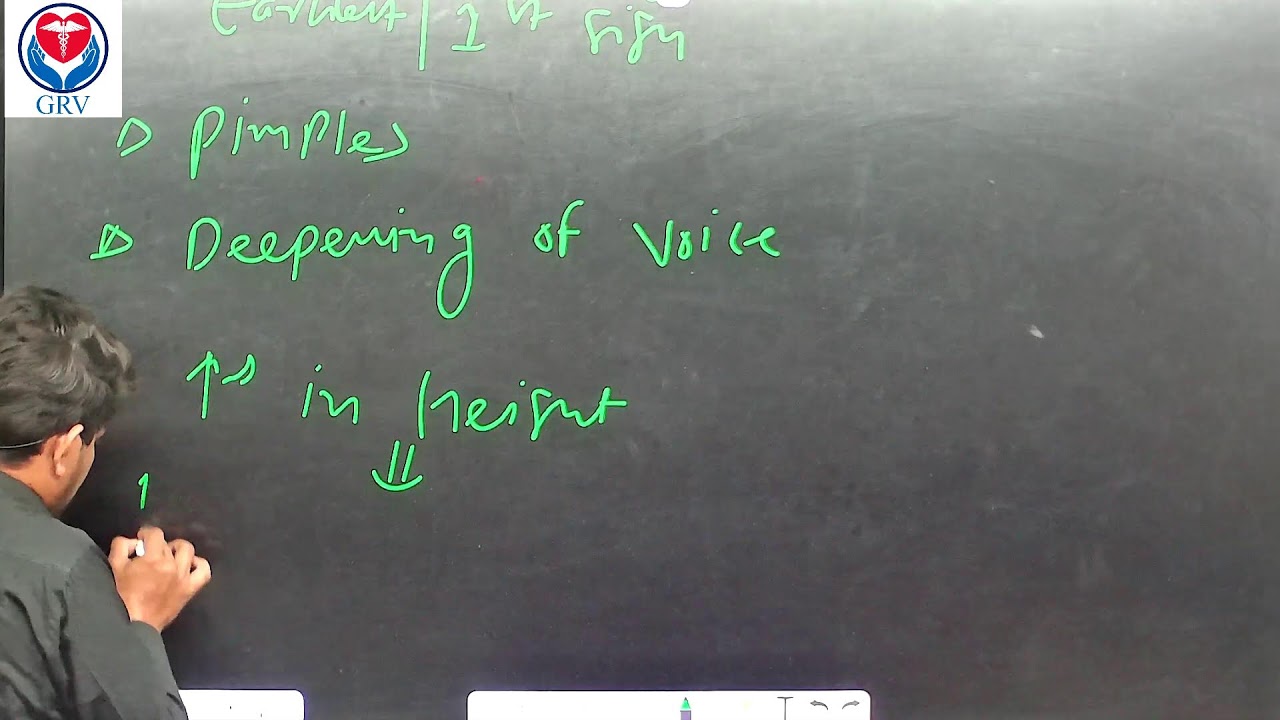 Earliest / 1st sign
GRV
▷ Pimples
▷ Deepening of Voice
↑s in height
⇓
1